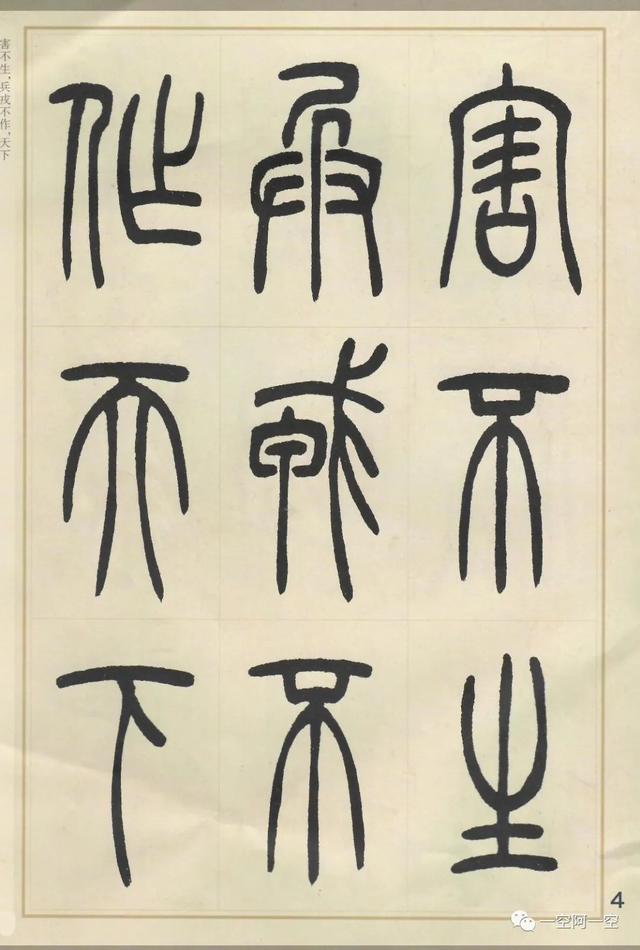 害不生
兵戎不
作天下
害不生，兵戎不作，天下
4
一空阿一空